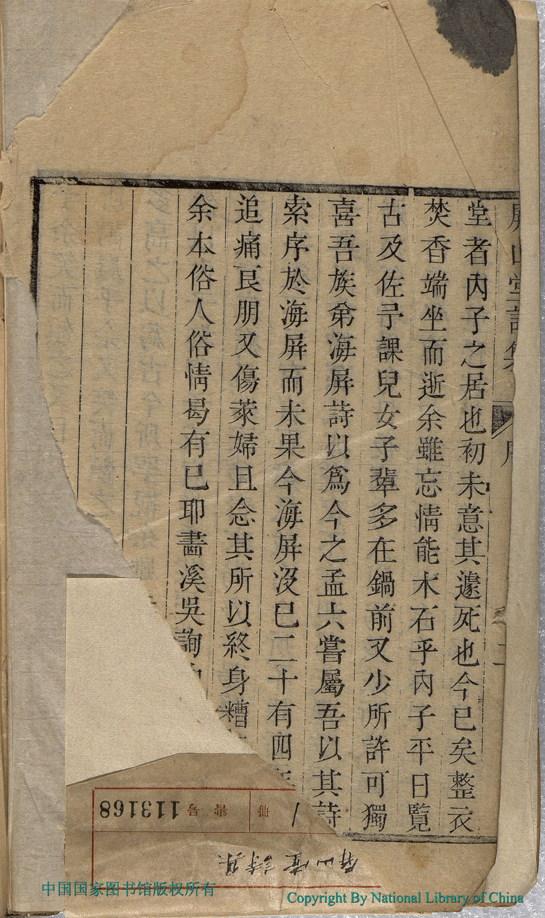 屏山堂詩集
序
二
堂者內子之居也初未意其遽死也今已矣整衣
焚香端坐而逝余雖忘情能木石乎內子平日覽
古及佐予課兒女子輩多在鍋前又少所許可獨
喜吾族弟海屏詩以爲今之孟六嘗屬吾以其詩
索序於海屏而未果今海屏沒已二十有四
追痛良朋又傷萊婦且念其所以終身糟
余本俗人俗情曷有已耶畵溪吳詢
113168
號
冊
1
屏山堂詩集
中国国家图书馆版权所有
Copyright By National Library of China